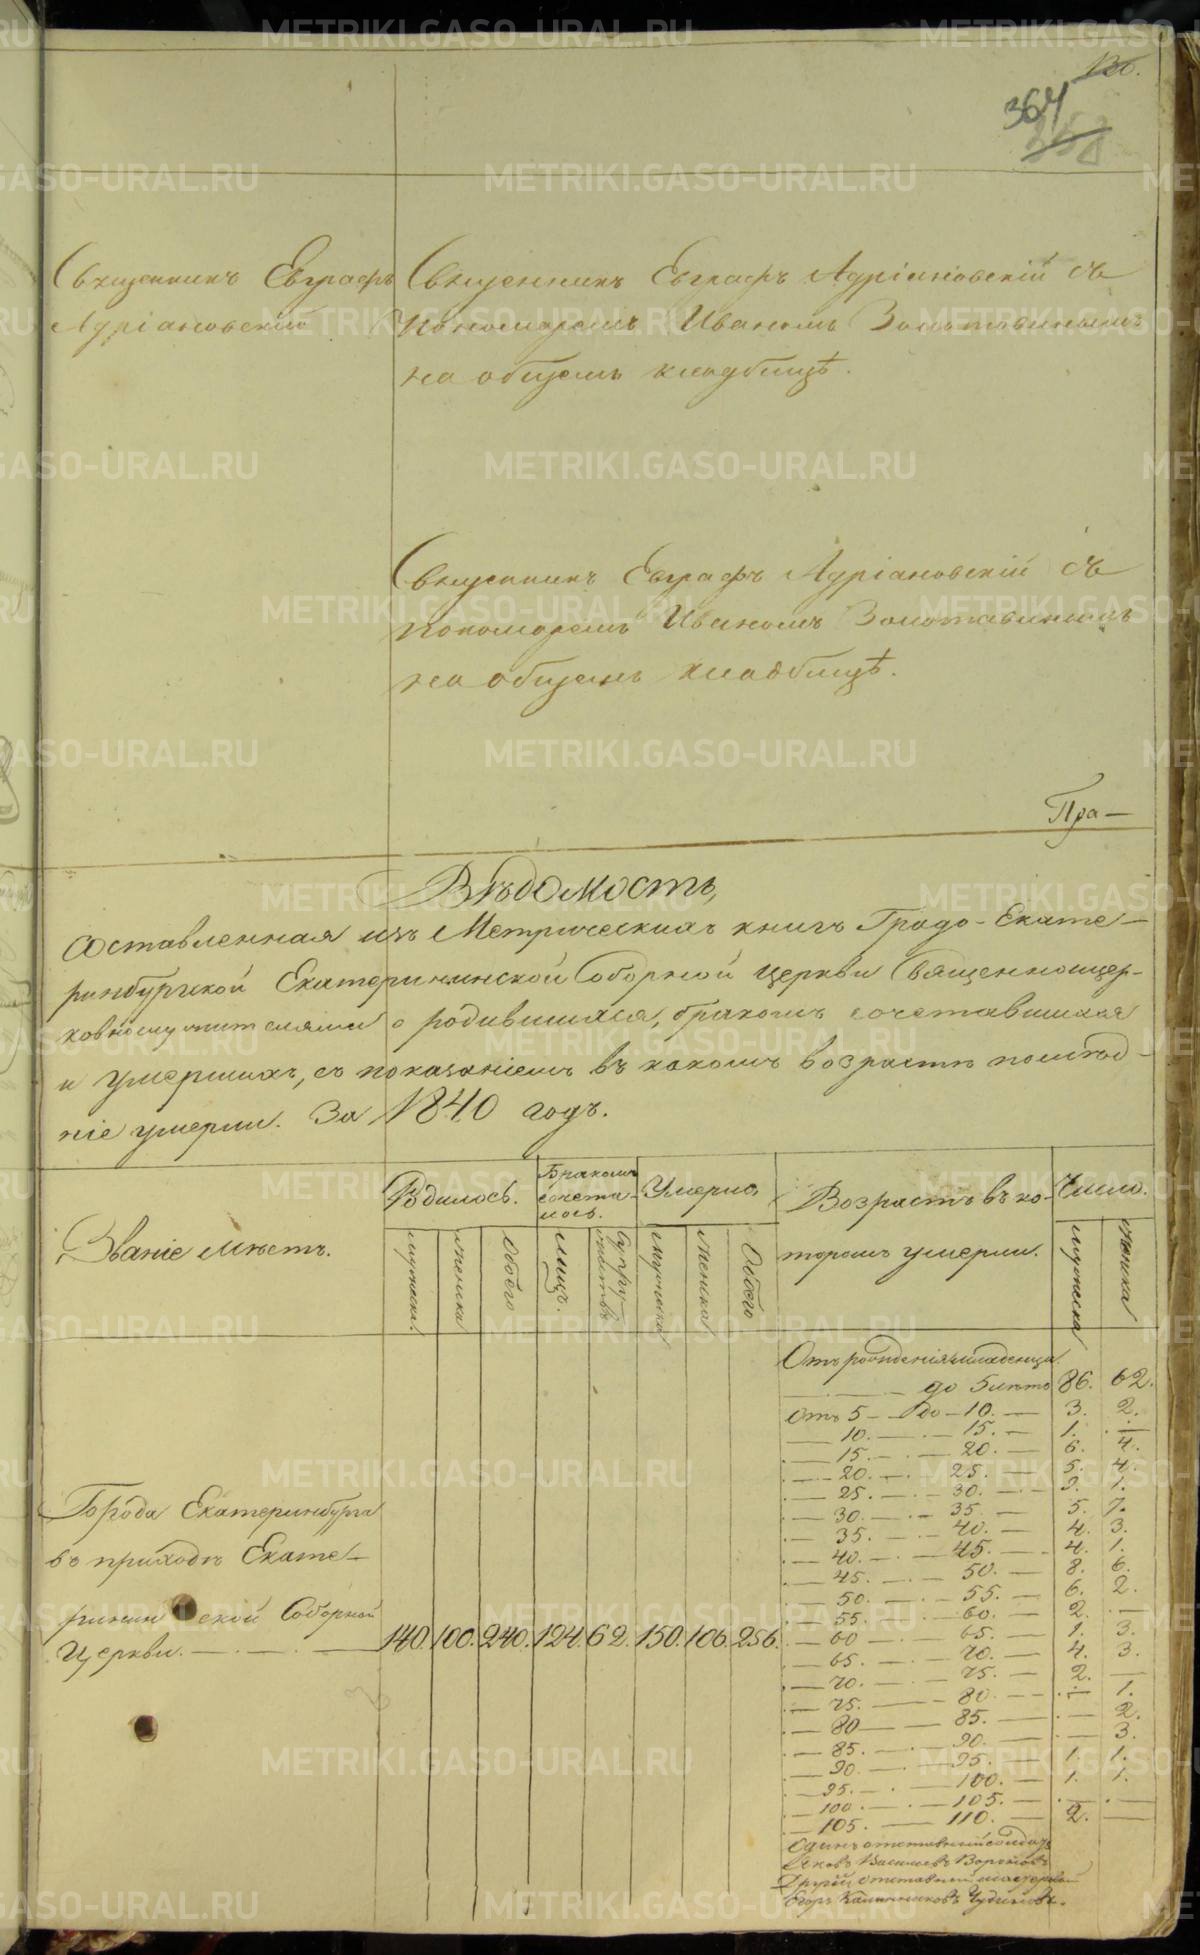 130.
364
Священникъ Евграфъ
Адріановскій
Священникъ Евграфъ Адріановскій съ
Пономаремъ Иваномъ Золотавинымъ
на общемъ кладбищѣ.
Священникъ Евграфъ Адріановскій съ
пономаремъ Иваномъ Золотавинымъ
на общемъ кладбищѣ.
Пра—
Вѣдомость,
составленная изъ Метрическихъ книгъ Градо-Екате-
ринбургской Екатерининской Соборной церкви Священноцер-
ковнослужителями о родившихся, бракомъ сочетавшихся
и умершихъ, съ показаніемъ въ какомъ возрастѣ послѣд-
ніе умерли. За 1840 годъ.
Званіе мѣстъ.
Родилось.
Бракомъ
сочета-
лось.
Умерло
Возрастъ въ ко-
торомъ умерли.
Число.
мужеска.
женска
Обоего
лицъ.
Супру
жествъ
мужеска
женска
Обоего
мужеска
женска
Города Екатеринбурга
въ приходѣ Екате-
ринин ской Соборной
Церкви.
140. 100. 240. 124. 62. 150. 106. 256.
Отъ рожденія младенца
до 5 лѣтъ 86. 62.
Отъ 5 — до — 10. — 3. 2.
— 10. — 15. — 1. —
— 15. — 20. — 6. 4.
— 20. — 25. — 5. 4.
— 25. — 30. — 1.
— 30. — 35. — 5. 7.
— 35. — 40. — 4. 3.
— 40. — 45. — 4. 1.
— 45. — 50. — 8. 6.
— 50. — 55. — 6. 2.
— 55. — 60. — 2. —
— 60 — 65. — 1. 3.
— 65. — 70. — 4. 3.
— 70. — 75. — 2. —
— 75. — 80. — — 1.
— 80 — 85. — — 2.
— 85. — 90. — — 3.
— 90. — 95. — 1. 1.
— 95. — 100. — 1. 1.
— 100. — 105. — — —
— 105. — 110. — 2. —
Одинъ отставный солдатъ
Яковъ Васильевъ
Другій отставный мастеровой
Егоръ Чудиновъ.
METRIKI.GASO-URAL.RU